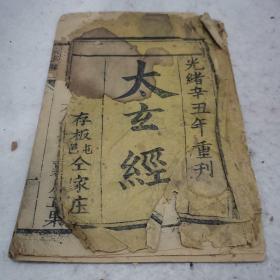 光緒辛丑年重刊
太玄經
存板邑屯仝家庄